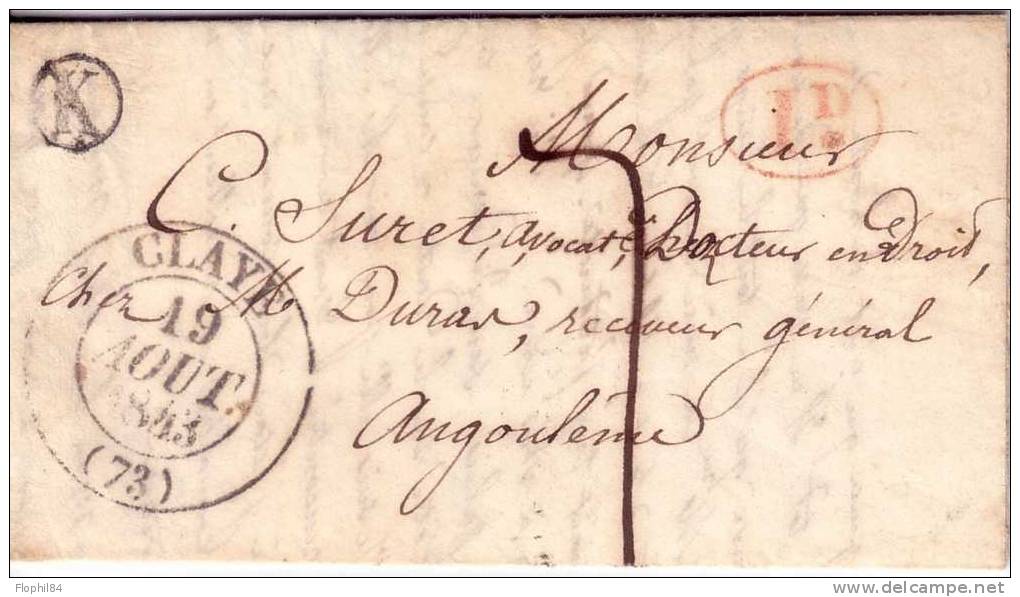 K
1 D.
Monsieur
C. Suret, avocat, Docteur en Droit,
Chez M Duras, receveur général
Angoulême
7
CLAYE
19
AOUT
1843
(73)
Flophil84
www.delcampe.net